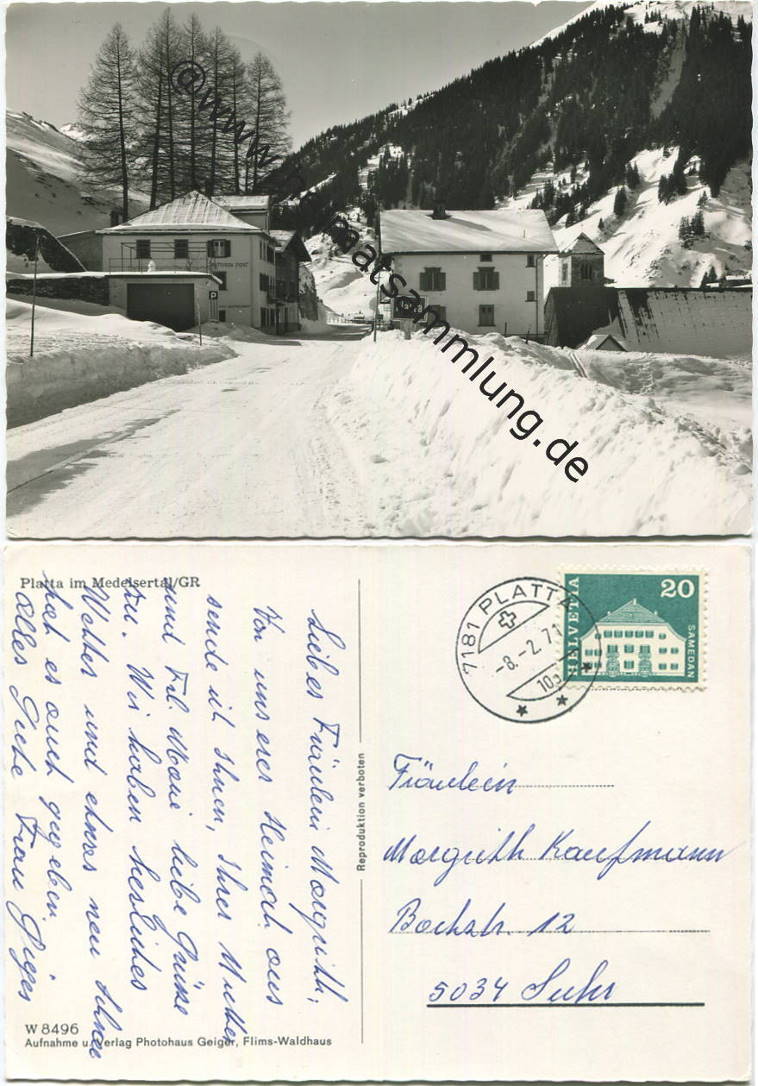 © www.heimatsammlung.de
PENSION POST
P
Platta im Medelsertal/GR
Liebes Fräulein Morgrith,
Von unserer Heimat aus
sende ich Ihnen, Ihrer Mutter
und Frl Marie liebe Grüsse
zu. Wir haben herrliches
Wetter und etwas neu Schnee
hat es auch gegeben
Alles Gute Frau Gieger
Reproduktion verboten
W 8496
Aufnahme u. Verlag Photohaus Geiger, Flims-Waldhaus
7181 PLATTA
-8.-2.71
10
HELVETIA
20
SAMEDAN
Fräulein
Morgrith Kaufmann
Bachstr. 12
5034 Suhr